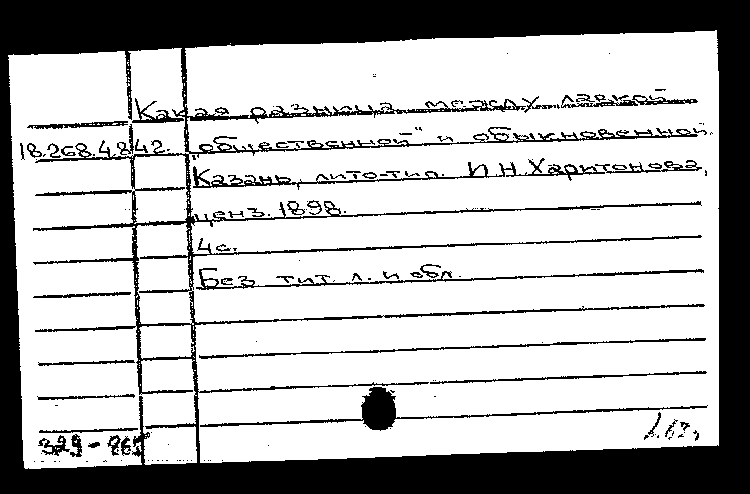 Какая разница между лавкой
18.268.4.842. "общественной" и обыкновенной.
Казань, лито-тип. И.Н.Харитонова,
ценз. 1898.
4с.
Без тит. л. и обл.
329-865